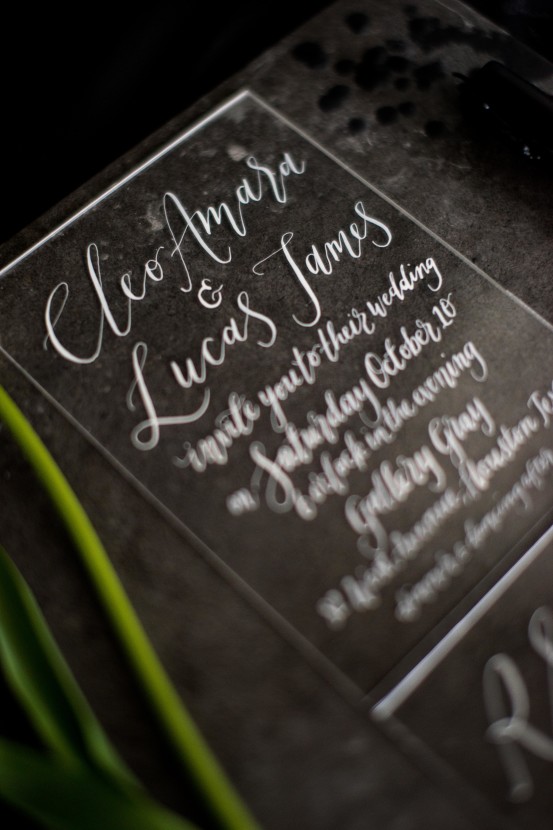 Cleo Amara
&
Lucas James
invite you to their wedding
on Saturday October 10
in the evening
Gallery Gray
Houston
R